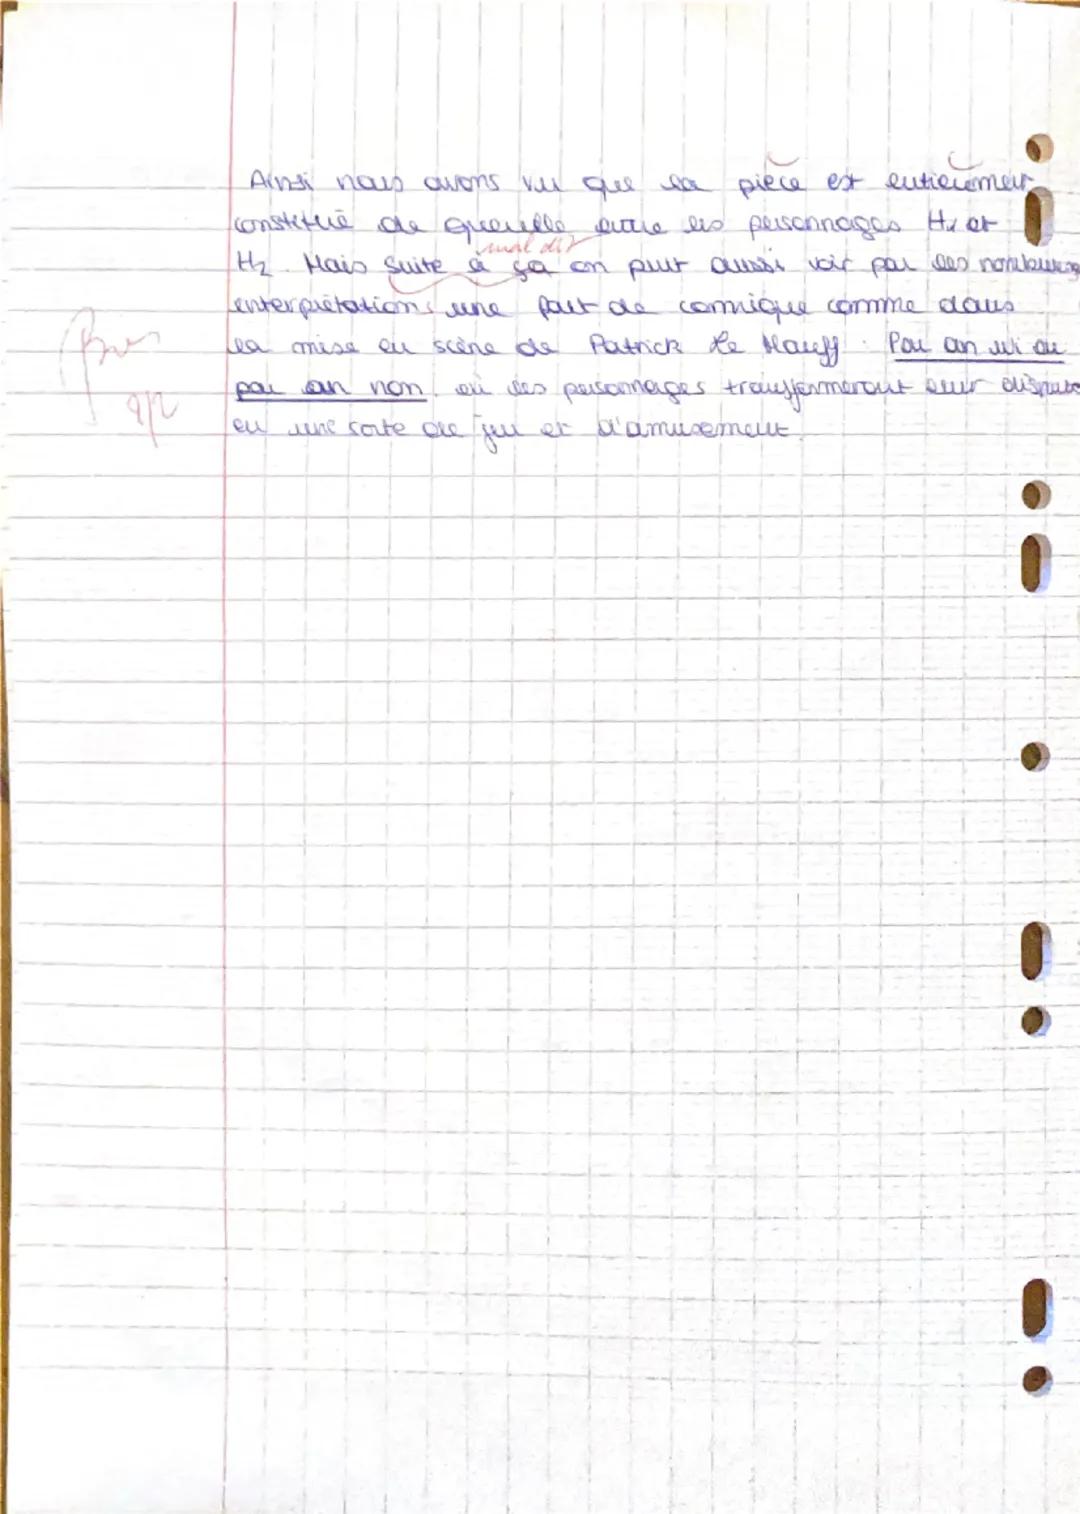 Ainsi nous avons vu que la pièce est entièrement
constitué de querelle entre les personnages H1 et
mal dit
H2. Mais suite à ça on peut aussi voir par des nombreuses
interprétations une part de comique comme dans
la mise en scène de Patrick Le Mauff : Pour un oui ou
pour un non, où les personnages transformeront leur dispute
en une sorte de jeu et d'amusement.